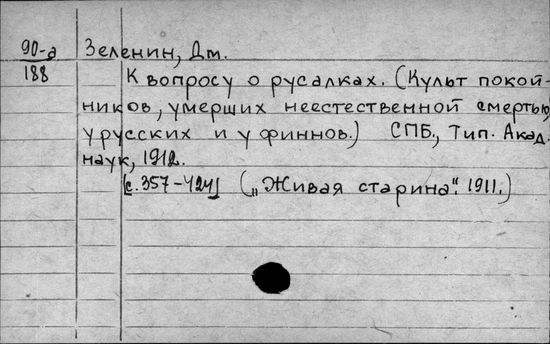 90-а Зеленин, Дм.
188 К вопросу о русалках. (Культ покой-
ников, умерших неестественной смертью,
у русских и у финнов.) СПБ., Тип. Акад.
наук, 1912.
[с. 357-424] („Живая старина“. 1911.)